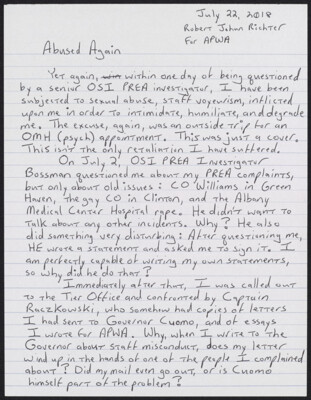 July 22, 2018
Robert Johan Richter
For APWA
Abused Again
Yet again, within one day of being questioned
by a senior OSI PREA investigator, I have been
subjected to sexual abuse, staff voyeurism, inflicted
upon me in order to intimidate, humiliate, and degrade
me. The excuse, again, was an outside trip for an
OMH (psych) appointment. This was just a cover.
This isn't the only retaliation I have suffered.
On July 2, OSI PREA Investigator
Bossman questioned me about my PREA complaints,
but only about old issues: CO Williams in Green
Haven, the gay CO in Clinton, and the Albany
Medical Center Hospital rape. He didn't want to
talk about any other incidents. Why? He also
did something very disturbing: After questioning me,
HE wrote a statement and asked me to sign it. I
am perfectly capable of writing my own statements,
so why did he do that?
Immediately after that, I was called out
to the Tier Office and confronted by Captain
Raczkowski, who somehow had copies of letters
I had sent to Governor Cuomo, and of essays
I wrote for APWA. Why, when I write to the
Governor about staff misconduct, does my letter
wind up in the hands of one of the people I complained
about? Did my mail even go out, or is Cuomo
himself part of the problem?